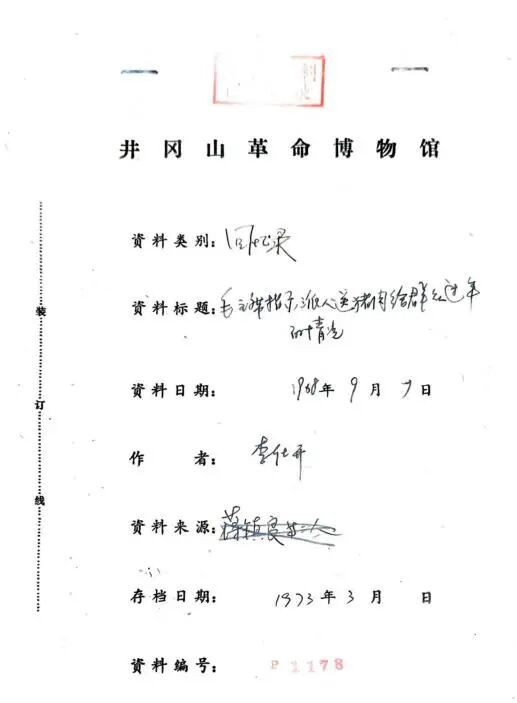 井冈山革命博物馆
资料类别:回忆录
资料标题:毛主席指示派人送猪肉给群众过年
的情况
资料日期: 1968年 9 月 9 日
作 者: 李仕开
资料来源:
存档日期: 1973年3月 日
资料编号: P 1178
装订线